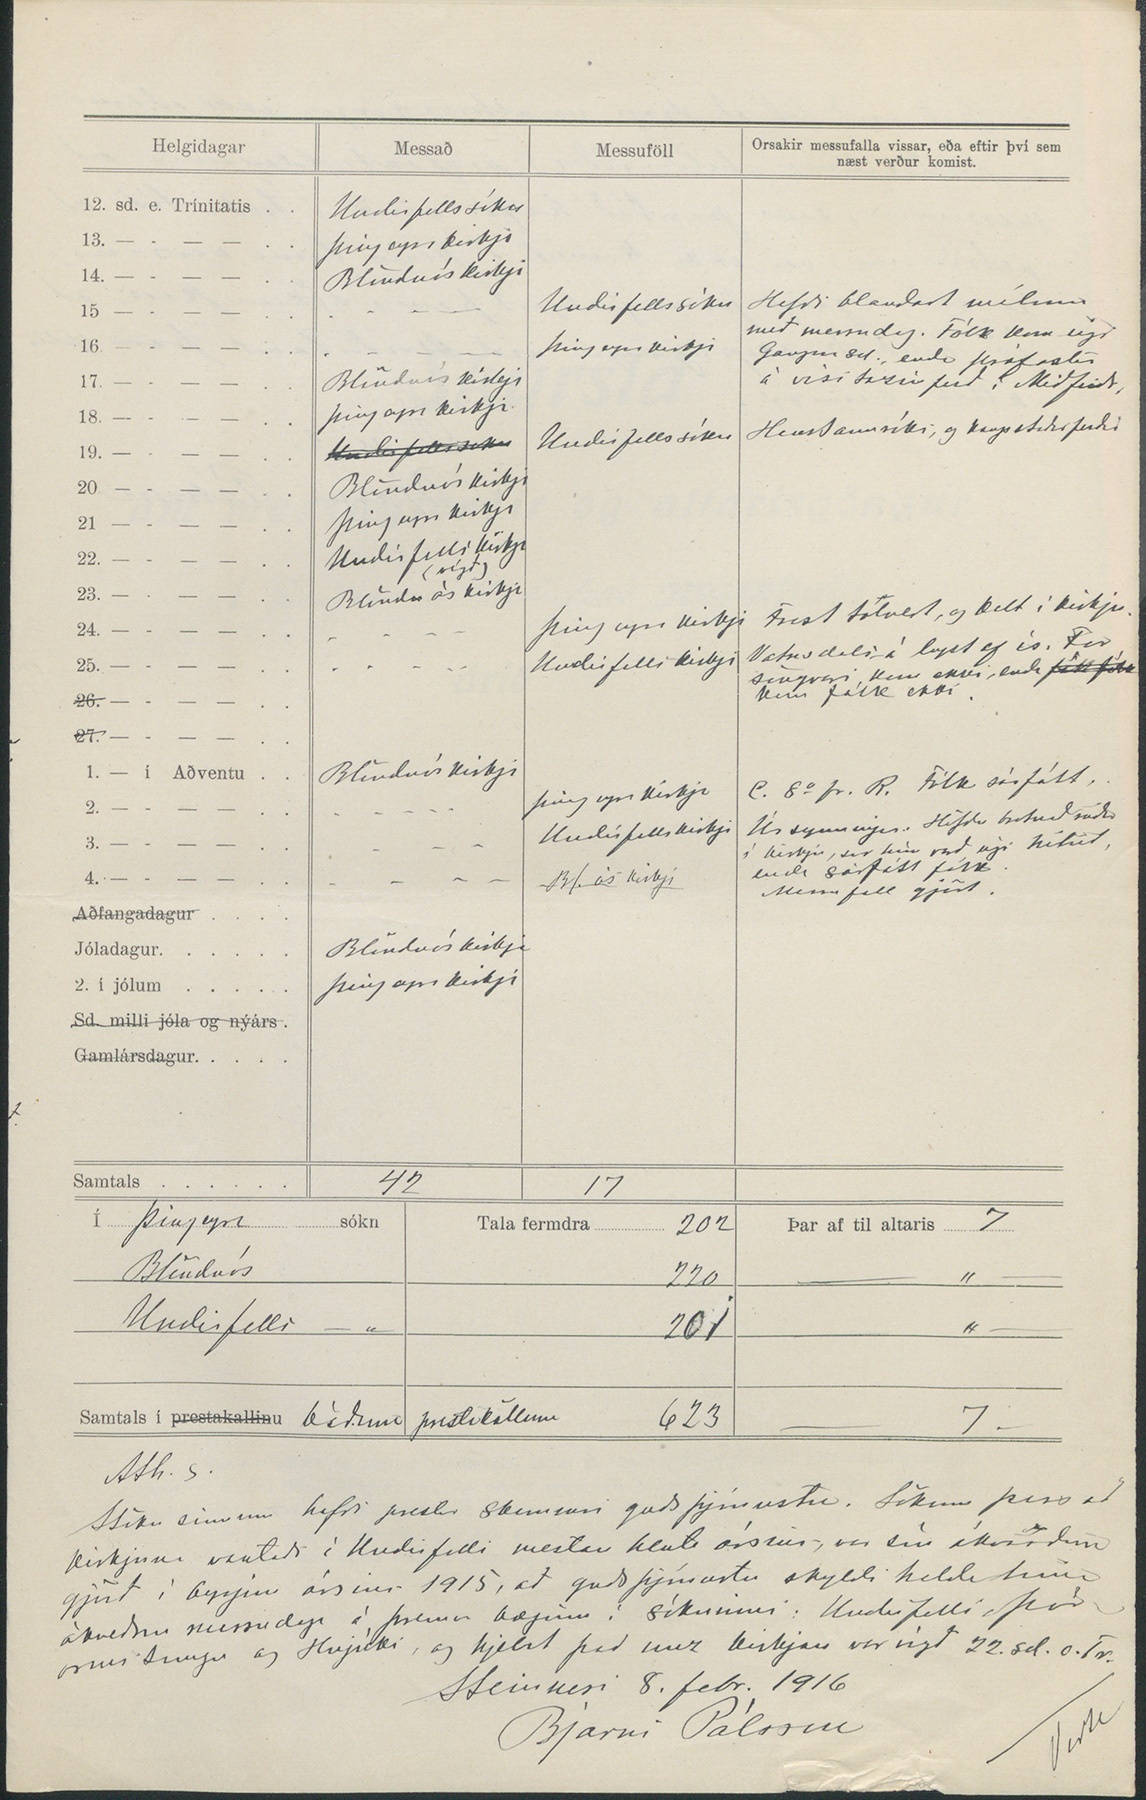 Helgidagar Messað Messuföll Orsakir messufalla vissar, eða eftir því sem
næst verður komist.
12. sd. e. Trínitatis . . Undirfellssókn
13. — - — — . . Þingeyrakirkja
14. — - — — . . Blönduóskirkja
15 — - — — . . Undirfellssókn Hafði blandast
með messudag. Fólk kom eigi
16 — - — — . . Þingeyrakirkja Gangna sd., enda prófastur
17. — - — — . . Blönduóskirkja á visitazíuferð í Miðfirði,
18. — - — — . . Þingeyrakirkja
19. — - — — . . Undirfellssókn Undirfellssókn og kaupstaðarferðir
20 — - — — . . Blönduóskirkja
21 — - — — . . Þingeyrakirkja
22. — - — — . . Undirfellskirkja
(vígð)
23. — - — — . . Blönduóskirkja
24. — - — — . . Þingeyrakirkja Fáest tólvert, og kalt í kirkju.
25. — - — — . . Undirfellskirkja Vatnsdalsá lögst af ís. For
söngvari kom ekki, enda
kom fólk ekki.
26. — - — — . .
27. — - — — . .
1. — í Aðventu . . Blönduóskirkja
2. — - — — . . Þingeyrakirkja C. 8° fr. R. Fólk sárfátt.
3. — - — — . . Undirfellskirkja Úrsynningur.
í kirkju, svo hún varð eigi hituð,
4. - — — . . Bl.óskirkja enda sárfátt fólk.
Messufall gjört.
Aðfangadagur . . . .
Jóladagur. . . . . . Blönduóskirkja
2. í jólum . . . . . Þingeyrakirkja
Sd. milli jóla og nýárs .
Gamlársdagur. . . . .
Samtals . . . . . . 42 17
Í Þingeyra sókn Tala fermdra 202 Þar af til altaris 7
Blönduós 220 "
Undirfells — „ 201 "
Samtals í prestakallinu báðum prestaköllum 623 7 -
Ath. s.
hafði prestur guðsþjónustu. Sökum þess að
kirkjuna vantaði í Undirfelli mestan hluta ársins, var sú ákvörðun
gjörð í byrjun ársins 1915, að guðsþjónustu skyldi halda
ákveðna messudaga á þremur bæjum í sókninni: Undirfelli, Þór-
ormstungu og Hnjúki, og hjelst það unz kirkjan var vígð 22. sd. e. Tr.
Steinnesi 8. febr. 1916
Bjarni Pálsson